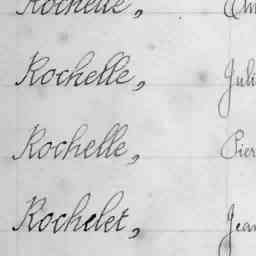 Rochelle,
Rochelle, Juli
Rochelle, Pier
Rochelet, Jean